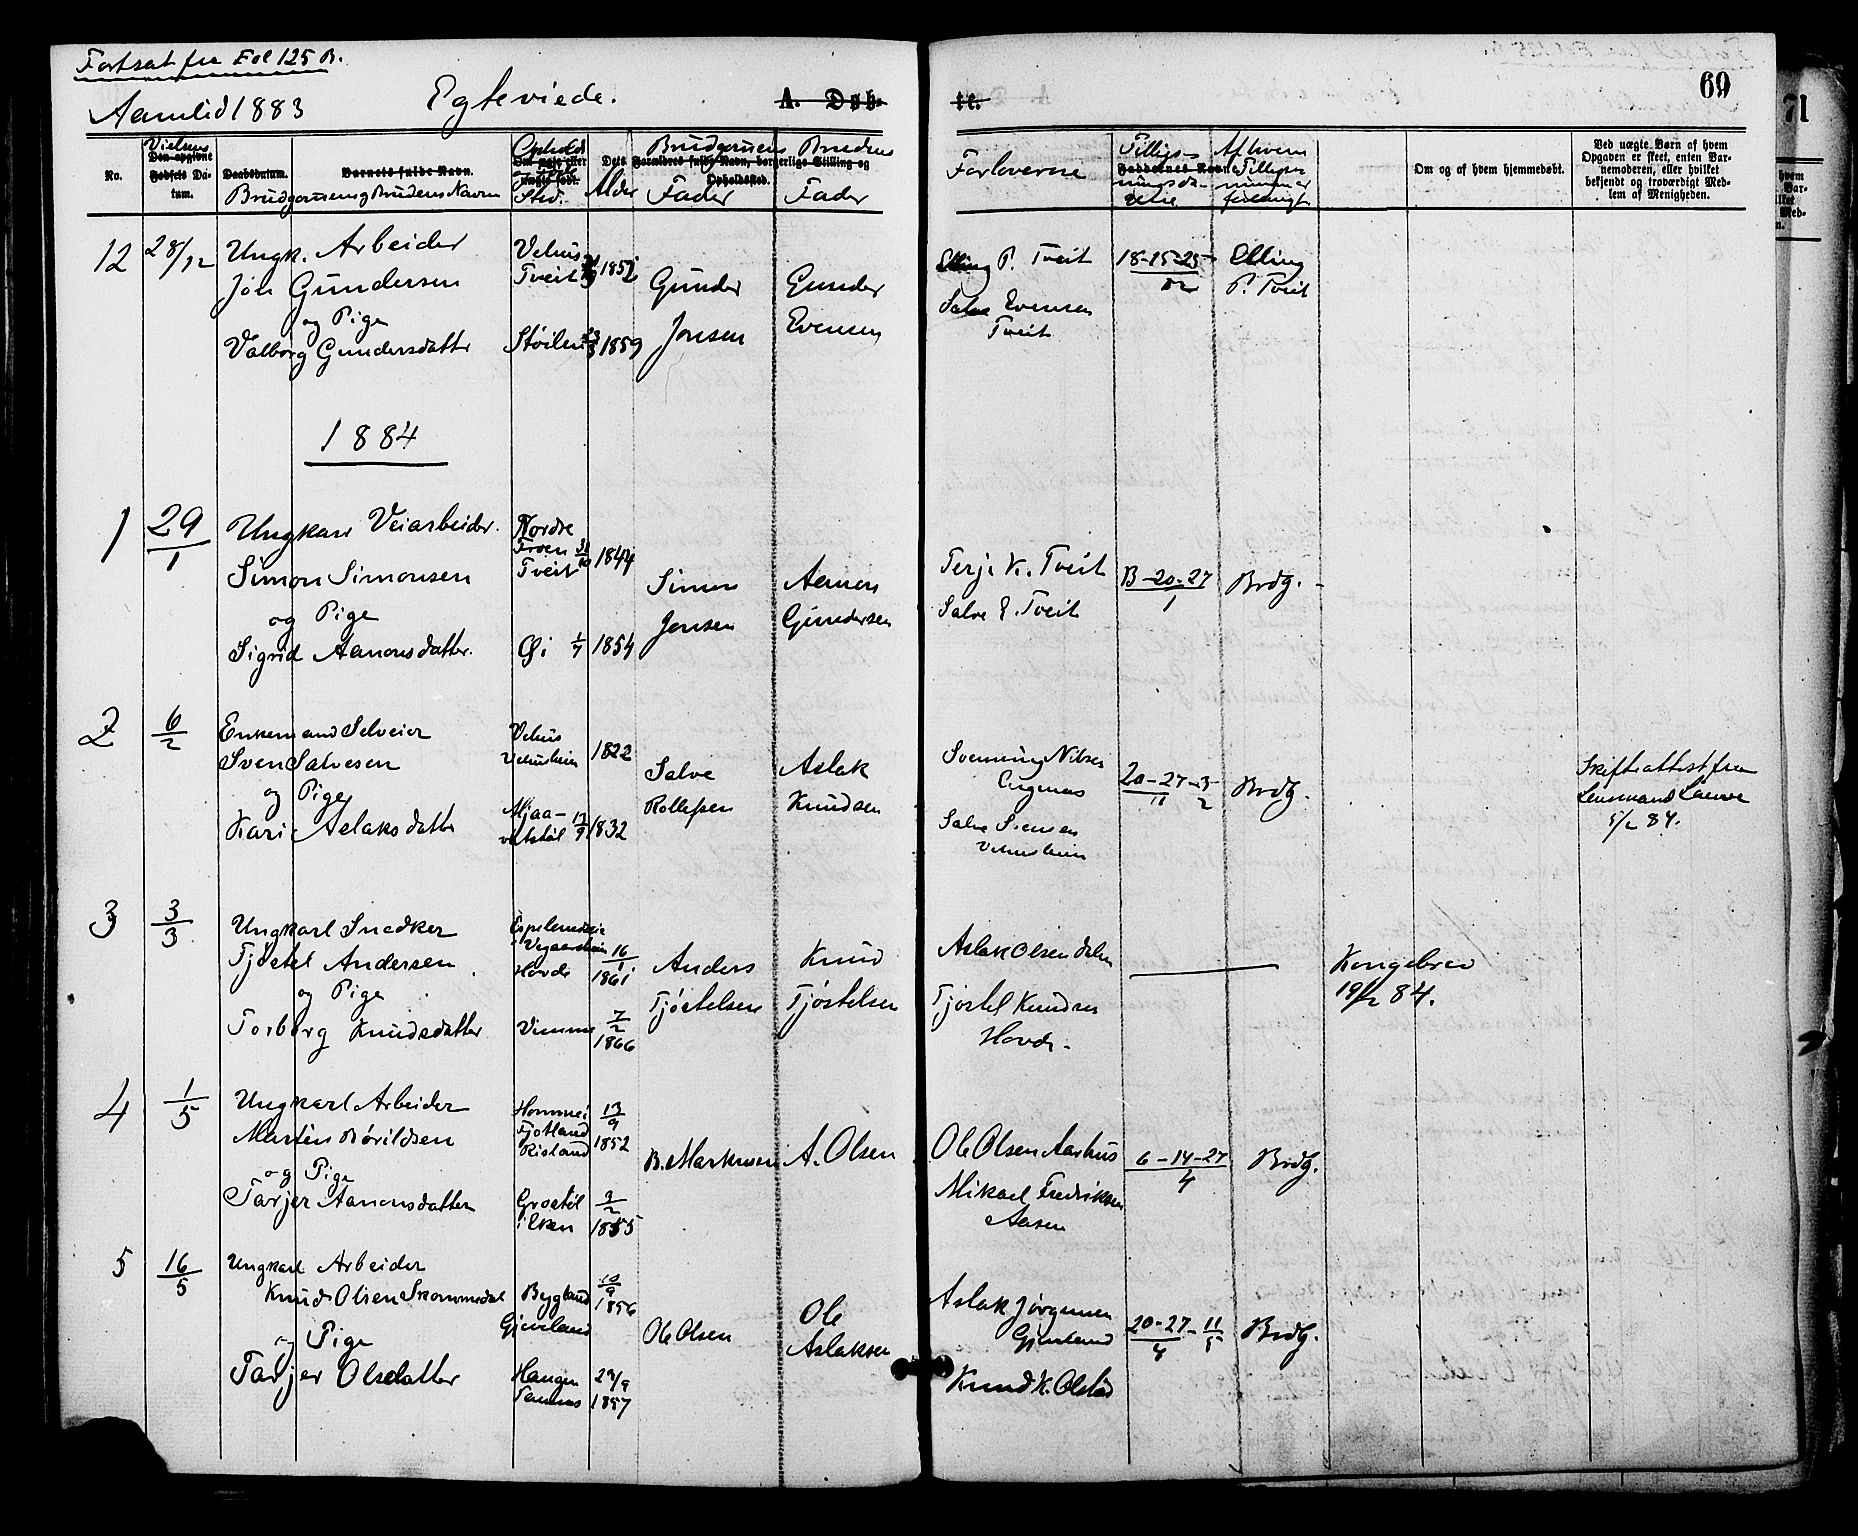 Fortsat fra Fol 125 B.
Aamlid 1883
Egteviede.
A. Døb-
te.
69
71
No.
Vielsens
Den opgivne
Fødsels Da-
tum.
Daabsdatum.
Barnets fulde Navn.
Brudgommens og Brudens Navn
Opholds
Om ægte eller
uægte født.
Sted.
Dets
Alder
Brudgommens Brudens
Forældres fulde Navn, borgerlige Stilling og
Opholdssted.
Fader Fader
Forloverne
Faddernes Navne
Af hvem
Om og af hvem hjemmedøbt.
Ved uægte Børn af hvem
Opgaden er skeet, enten Bar-
nemoderen, eller hvilket
bekjendt og troværdigt Med-
lem af Menigheden.
12 28/12 Ungk. Arbeider
Jon Gundersen
og Pige
Valborg Gundersdatter
Vehus
Tveit 1852
Støilen 1859
Gunder
Jonsen
Gunder
Evensen
Elling P. Tveit
Salve Evensen
Tveit
18-15-25
12
Elling
P. Tveit
1884
1 29/1 Ungkarl Veiarbeider.
Simon Simonsen
og Pige
Sigrid Aanonsdatter.
Nordre
Froen
Tveit 1844
Øi 1/7 1854
Simon
Jonsen
Aanon
Gundersen
Terje K. Tveit
Salve E. Tveit
13-20-27
1
Brdg.
2 6/2 Enkemand Selveier
Sven Salvesen
og Pige
Kari Aslaksdatter
Vehus
Vehusheien 1822
Mjaa-
vatstøl 1832
Salve
Rollefsen
Aslak
Knudsen
Svenning Nilsen
Salve Svensen
Vehusheien
20-27-3
Brdg.
Skifteattest fra
Lensmand
5/2 84.
3 3/3 Ungkarl Snedker
Tjøstel Andersen
og Pige
Torborg Knudsdatter
Hovde
16/1
1861
7/2
1866
Anders
Tjøstelsen
Knud
Tjøstelsen
Aslak Olsen Dalen
Tjøstel Knudsen
Hovde.
Kongebrev
19/2 84.
4 1/5 Ungkarl Arbeider
Martin Børildsen
og Pige
Tarjer Aanonsdatter
Hommei
Fjotland
Risland
13/9
1852
Grostøl
2
1855
B. Markusen
A. Olsen
Ole Olsen Aashus
Mikael Fredriksen
Aasen
6-14-27
4
Brdg.
5 16/5 Ungkarl Arbeider
Knud Olsen Skommedal
og Pige
Tarjer Olsdatter
Bygland
Gjeveland
10/9
1856
Haugen
29/9
1857
Ole Olsen
Ole
Aslaksen
Aslak Jørgensen
Gjeveland
Knud K. Olstad
20-27-11
4 5
Brdg.